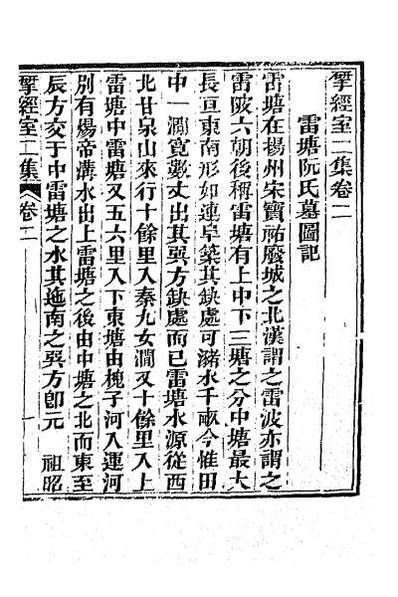 揅經室二集卷二
雷塘阮氏墓圖記
雷塘在揚州宋寶祐廢城之北漢謂之雷波亦謂之
雷陂六朝後稱雷塘有上中下三塘之分中塘最大
長亘東南形如連阜築其缺處可瀦水千畝今惟田
中一澗寬數丈出其巽方缺處而已雷塘水源從西
北甘泉山來行十餘里入秦九女澗又十餘里入上
雷塘中雷塘又五六里入下東塘由槐子河入運河
別有煬帝溝水出上雷塘之後由中塘之北而東至
辰方交于中雷塘之水其迤南之巽方卽元　祖昭
揅經室二集　卷二　一